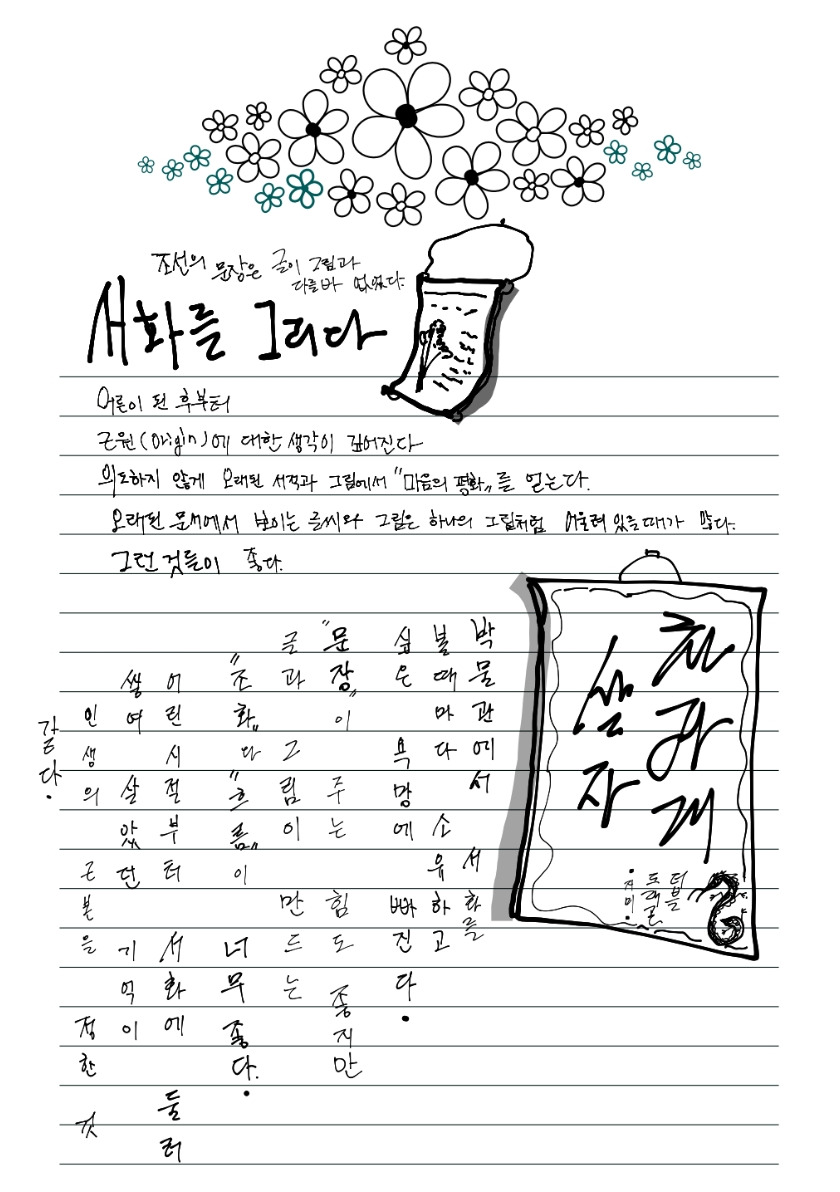 조선의 문장은 글이 그림과
다를바 없었다.
서화를 그리다
어른이 된 후부터
근원(Origin)에 대한 생각이 깊어진다
의도하지 않게 오래된 서적과 그림에서 "마음의 평화"를 얻는다.
오래된 문서에서 보이는 글씨와 그림은 하나의 그림처럼 어울려 있을때가 많다.
그런 것들이 좋다.
박물관에서 서화를
볼때마다 소유하고
싶은 욕망에 빠진다.
"문장"이 주는 힘도 좋지만
글과 그림이 만드는
"조화"다 "흐름"이 너무 좋다.
어린 시절부터 서화에 둘러
쌓여 살았단 기억이
인생의 근본을 정한 것
같다.
더블
드래곤